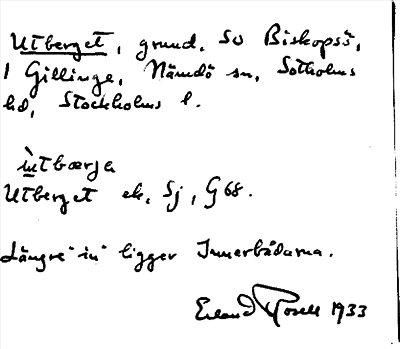 Utberget, grund, SO Biskopsö,
1 Gillinge, Nämdö sn, Sotholms
hd, Stockholms l.
ùtbærja
Utberget ek. Sj, G 68.
Längre "in" ligger Innerbådarna.
Erland Rosell 1933